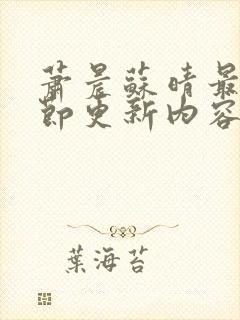 蕭晨蘇晴最
節更新內容
葉海苔